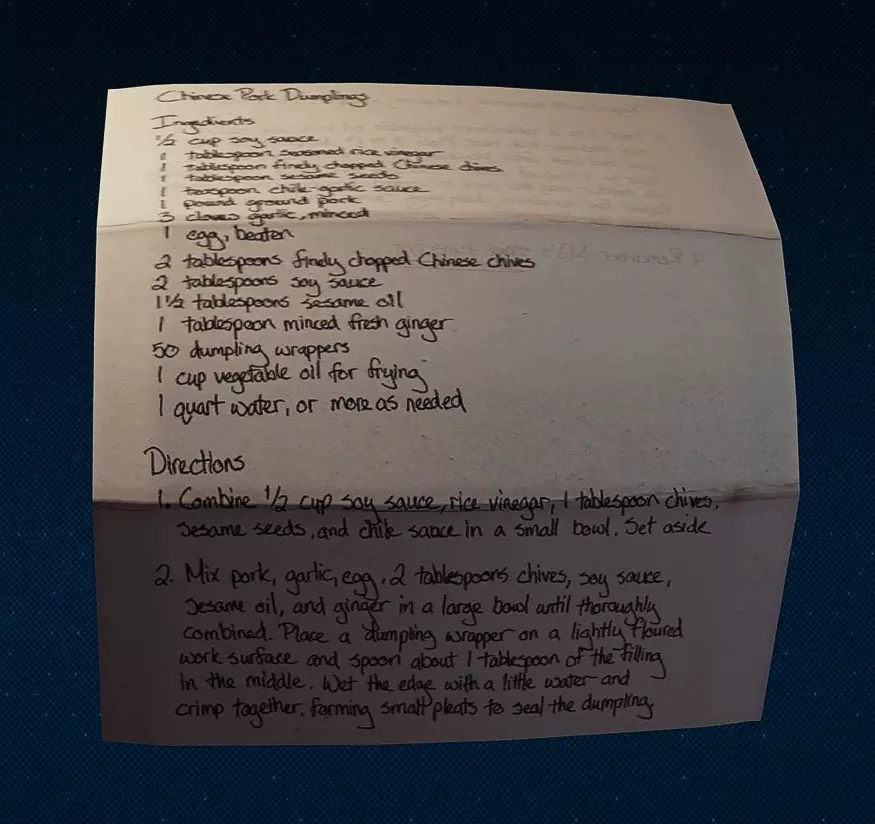 Chinese Pork Dumplings
Ingredients
1/2 cup soy sauce
1 tablespoon seasoned rice vinegar
1 tablespoon finely chopped Chinese chives
1 tablespoon sesame seeds
1 teaspoon chile-garlic sauce
1 pound ground pork
3 cloves garlic, minced
1 egg, beaten
2 tablespoons finely chopped Chinese chives
2 tablespoons soy sauce
1 1/2 tablespoons sesame oil
1 tablespoon minced fresh ginger
50 dumpling wrappers
1 cup vegetable oil for frying
1 quart water, or more as needed
Directions
1. Combine 1/2 cup soy sauce, rice vinegar, 1 tablespoon chives,
sesame seeds, and chile sauce in a small bowl. Set aside
2. Mix pork, garlic, egg, 2 tablespoons chives, soy sauce,
sesame oil, and ginger in a large bowl until thoroughly
combined. Place a dumpling wrapper on a lightly floured
work surface and spoon about 1 tablespoon of the filling
in the middle. Wet the edge with a little water and
crimp together, forming small pleats to seal the dumpling